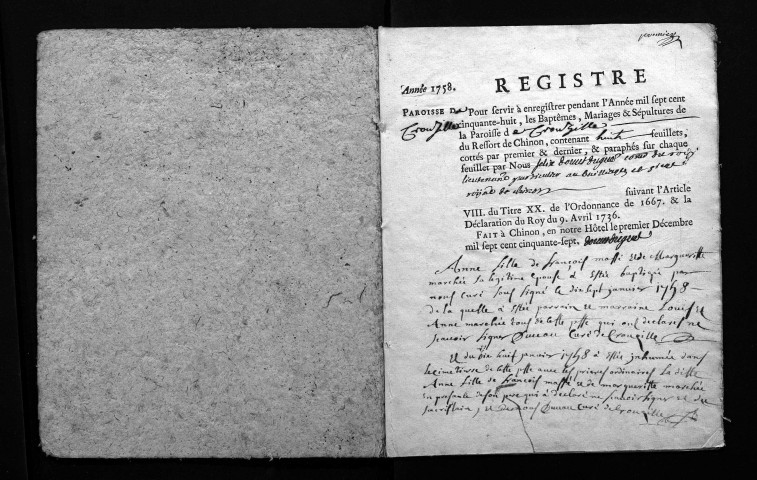 premier
Année 1758. REGISTRE
PAROISSE De Crouzilles
Pour servir à enregistrer pendant l'Année mil sept cent
cinquante-huit, les Baptêmes, Mariages & Sépultures de
la Paroisse de Crouzille
du Ressort de Chinon, contenant huit feuillets,
cottés par premier & dernier, & paraphés sur chaque
feuillet par Nous felix conser du roy
lieutenant particulier au bailliage et siege
royal de chinon
suivant l'Article
VIII. du Titre XX. de l'Ordonnance de 1667. & la
Déclaration du Roy du 9. Avril 1736.
FAIT à Chinon, en notre Hôtel le premier Décembre
mil sept cent cinquante-sept.
Anne fille de françois massé et de Margueritte
marchée sa legitime epouse a estée baptizée par
nous curé sous signé le dix sept janvier 1758
de la quelle a estée parrain et marraine Louis et
Anne marchée tous de cette psse qui ont declaré ne
scavoir signer Duveau Curé de Crouzille
Et du dix huit janvier 1758 a estée inhumée dans
le cimetierre de cette psse avec les prieres ordinaires la ditte
Anne fille de françois massé et de margueritte marchée
en presence de son pere qui a declaré ne scavoir signer et du
sacristain, Duveau Curé de Crouzille